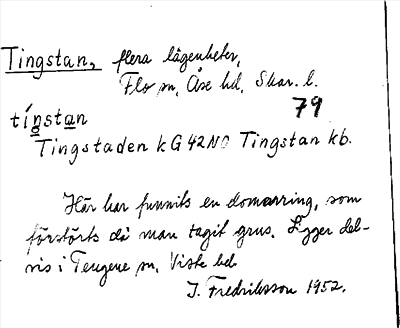 Tingstan, flera lägenheter,
Flo sn, Åse hd, Skar. l.
79
tíngstan
Tingstaden k G 42 NO Tingstan kb.
Här har funnits en domarring, som
förstörts då man tagit grus. Ligger del-
vis i Tengene sn, Viste hd
I. Fredriksson 1952.